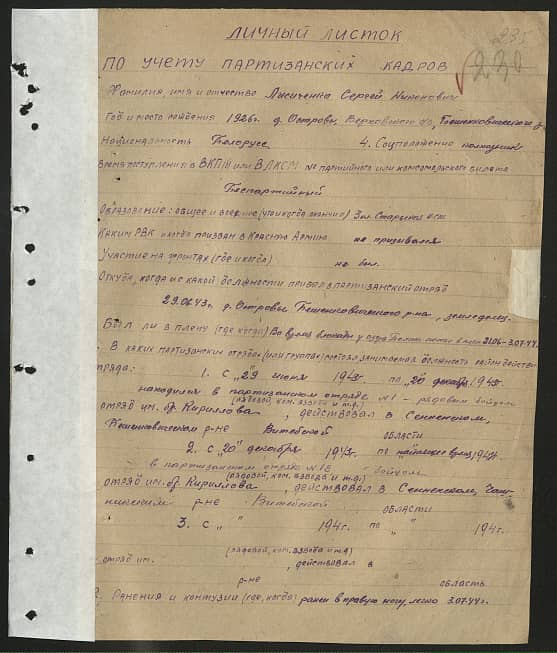 235
230
ЛИЧНЫЙ ЛИСТОК
ПО УЧЕТУ ПАРТИЗАНСКИХ КАДРОВ
Фамилия, имя и отчество Лисиченко Сергей
Год и место рождения 1926г. д. Островы
Национальность Белорусс 4. Соцположение
Время поступления в ВКП/б или ВЛКСМ № партийного или комсомольского билета
Беспартийный
Образование: общее и
Каким РВК и когда призван в Красную Армию не призывался
Участие на фронтах (где и когда) не был.
Откуда, когда и с какой должности пришел в партизанский отряд
29.06.43г. д. Островы Бешенковичского р-на, земледелец.
Был ли в плену (где когда) Во время блокады у озера
В каких партизанских отрядах (или группах) метода занимаемая должность район действия
отряда:
1. С "29" июня 1943г. по "20" декабря 1943г.
находился в партизанском отряде №1 - рядовым бойцом
(рядовой, ком. взвода и т.д.)
отряд им. бр. Кириллова, действовал в Сенненском,
Бешенковичском р-не Витебской области
2. С "20" декабря 1943г. по 194г.
в партизанском отряде №18 бойцом
(рядовой, ком. взвода и т.д.)
отряд им. бр. Кириллова, действовал в Сенненском, Чаш-
никском р-не Витебской области
3. С " " 194г. по " " 194г.
(рядовой, ком. взвода и т.д.)
отряд им. , действовал в
р-не область
Ранения и контузии (где, когда) ранен в правую ногу легко 3.07.44г.